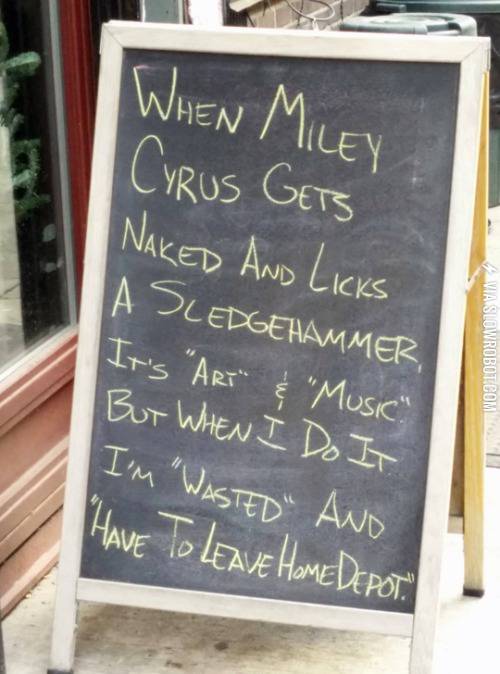 WHEN MILEY
CYRUS GETS
NAKED AND LICKS
A SLEDGEHAMMER,
IT'S "ART" & "MUSIC"
BUT WHEN I DO IT
I'M "WASTED" AND
"HAVE TO LEAVE HOME DEPOT."
VIA SLOWROBOT.COM